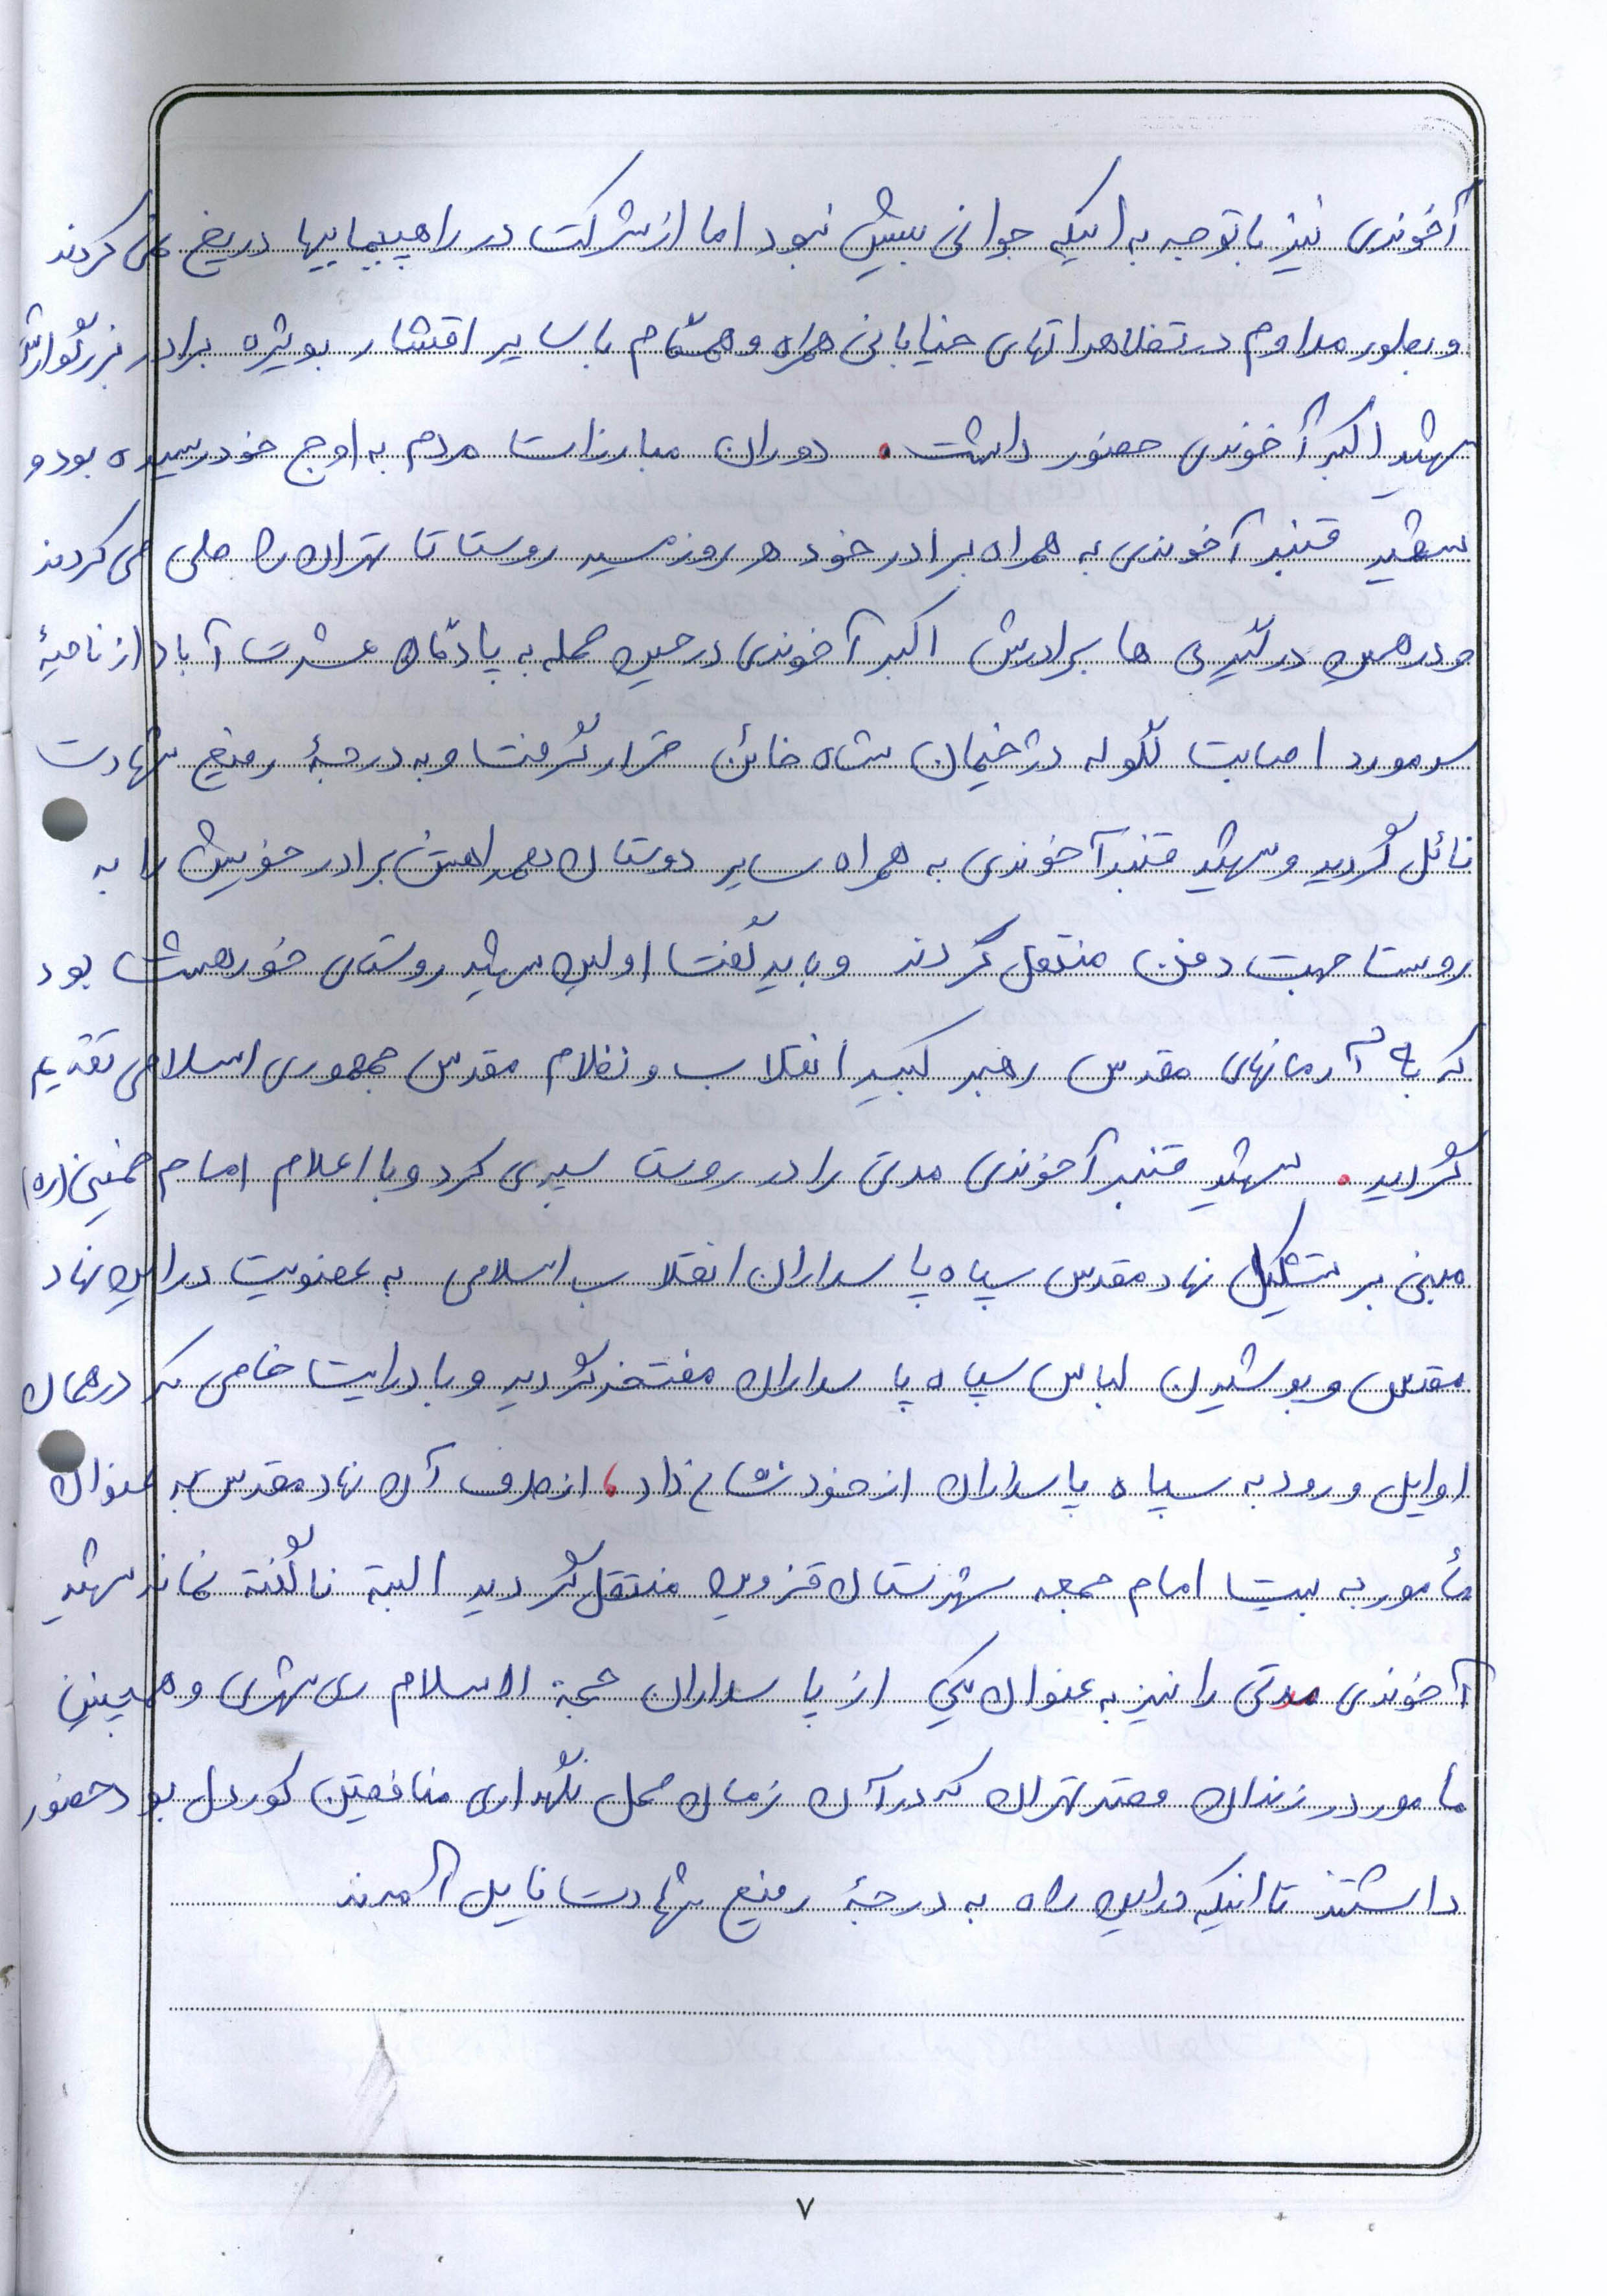 آخوندی نیز با توجه به اینکه جوانی بیش نبود اما از شرکت در راهپیماییها دریغ نمی کردند
و بطور مداوم در تظاهراتهای خیابانی همراه و همگام با سایر اقشار بویژه برادر بزرگوارش
شهید اکبر آخوندی حضور داشت. دوران مبارزات مردم به اوج خود رسیده بود و
شهید قنبر آخوندی به همراه برادر خود هر روز مسیر روستا تا تهران را طی می کردند
و در همین درگیری ها برادرش اکبر آخوندی در حین حمله به پادگان عشرت آباد از ناحیهٔ
سر مورد اصابت گلوله دژخیمان شاه خائن قرار گرفت و به درجهٔ رفیع شهادت
نائل گردید و شهید قنبر آخوندی به همراه سایر دوستان همراهش برادر خویش را به
روستا جهت دفن منتقل کردند و باید گفت اولین شهید روستای خورهشت بود
که به آرمانهای مقدس رهبر کبیر انقلاب و نظام مقدس جمهوری اسلامی تقدیم
گردید. شهید قنبر آخوندی مدتی را در روستا سپری کرد و با اعلام امام خمینی (ره)
مبنی بر تشکیل نهاد مقدس سپاه پاسداران انقلاب اسلامی به عضویت در این نهاد
مقدس و پوشیدن لباس سپاه پاسداران مفتخر گردید و با درایت خاصی که در همان
اوایل ورود به سپاه پاسداران از خود نشان داد، از طرف آن نهاد مقدس به عنوان
مأمور به بیت امام جمعه شهرستان قزوین منتقل گردید البته ناگفته نماند شهید
آخوندی مدتی را نیز به عنوان یکی از پاسداران حجة الاسلام ری شهری و همچنین
مأمور در زندان قصر تهران که در آن زمان محل نگهداری منافقین کوردل بود حضور
داشتند تا اینکه در این راه به درجهٔ رفیع شهادت نایل آمدند
۷